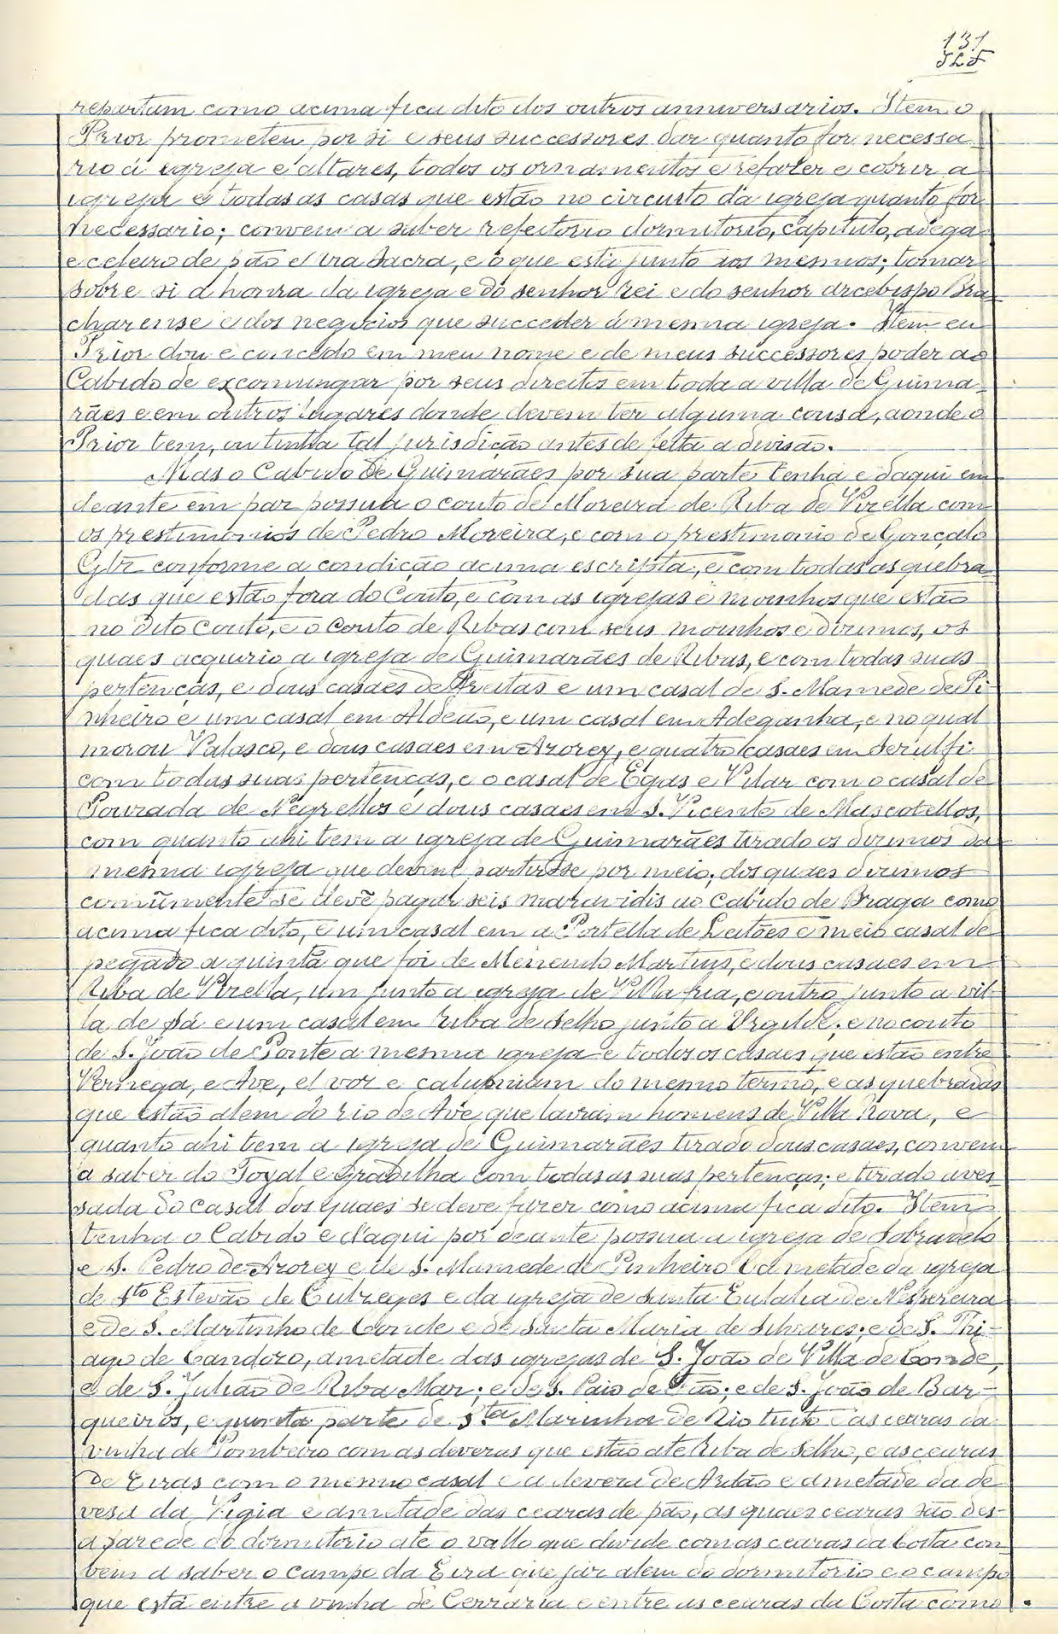 131
repartam como acima fica dito dos outros anniversarios. Item o
Prior prometeu por si e seus successores dar quanto for necessa
rio á igreja e altares, todos os ornamentos e refazer e cobrir a
igreja e todas as casas que estão no circuito da igreja quanto for
necessario; convem a saber refeitorio dormitorio, capitulo, adega
e celeiro de pão e via sacra, e o que está junto aos mesmos; tomar
sobre si a honra da igreja e do senhor rei e do senhor arcebispo Bra
charense e dos negocios que succeder á mesma igreja. Item eu
Prior dou e concedo em meu nome e de meus successores poder ao
Cabido de excomungar por seus direitos em toda a villa de Guima
rães e em outros lugares donde devem ter alguma cousa, aonde o
Prior tem, ou tinha tal jurisdição antes de feita a divisão.
Mas o Cabido de Guimarães por sua parte tenha e daqui em
deante em par possua o couto de Moreira de Riba de Vizella com
os prestimonios de Pedro Moreira, e com o prestimonio de Gonçalo
Glz conforme a condição acima escripta, e com todas as quebra
das que estão fora do Couto, e com as igrejas e moinhos que estão
no dito Couto, e o Couto de Ribas com seus moinhos e dizimos, os
quaes acquirio a igreja de Guimarães de Ribas, e com todas suas
pertenças, e dous casaes de Freitas e um casal de S. Mamede de Pi
nheiro e um casal em Aldeão, e um casal em Adeganha, e no qual
morou Valasco, e dous casaes em Azorey, e quatro casaes em Serulfi
com todas suas pertenças, e o casal de Egas e Vilar com o casal de
Pourada de Negrellos e dous casaes em S. Vicente de Mascotellos,
com quanto ahi tem a igreja de Guimarães tirado os dizimos da
mesma igreja que devem partirse por meio; dos quaes dizimos
comũmente se devẽ pagar seis maravidis ao Cabido de Braga como
acima fica dito, e um casal em a Portella de Leitões e meio casal de
pegado a quintã que foi de Menendo Martins, e dous casaes em
Riba de Vizella, um junto a igreja de Villa fria, e outro junto a vil-
la de Sá e um casal em Riba de Selho junto a Urgilde; e no couto
de S. João de Ponte a mesma igreja e todos os casaes que estão entre
Vermega, e Ave, el voz e calumniam do mesmo termo, e as quebradas
que estão alem do rio de Ave, que lavram homens de Villa Nova, e
quanto ahi tem a igreja de Guimarães tirado dous casaes, convem
a saber do Toyal e Gradilha com todas as suas pertenças; e tirado aves
sada do casal dos quaes se deve fazer como acima fica dito. Item
tenha o Cabido e d'aqui por deante possua a igreja de Sobradelo
e S. Pedro de Azorey e de S. Mamede de Pinheiro e a metade da igreja
de Sto Estevão de Eulreyes e da igreja de Santa Eulalia de Nespereira
e de S. Martinho de Conde e de Santa Maria de Silvares; e de S. Thi-
ago de Candozo, ametade das igrejas de S. João de Villa de Conde,
e de S. Julião de Riba Mar; e de S. Paio de ão; e de S. João de Bar-
queiros, e quinta parte de S.ta Marinha de Rio tinto e as cearas da
vinha de Pombeiro com as devezas que estão ate Riba de Selho, e as cearas
de Eiras com o mesmo casal e a deveza de Ardão e ametade da de
vesa da Vigia e ametade das cearas de pão, as quaes cearas são des-
a parede do dormitorio ate o vallo que divide com as cearas da Costa con
vem a saber o campo da Eira que jaz alem do dormitorio e o campo
que está entre a vinha de Cerraria e entre as cearas da Costa como